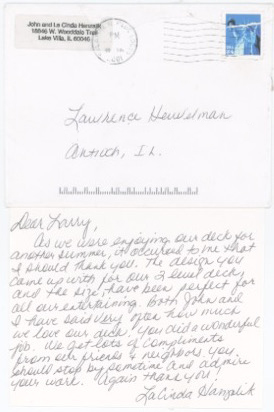 John and La Cinda
Lake Villa, IL 60046
PM
Lawrence Heuselman
Antioch, IL.
Dear Larry,
As we were enjoying our deck for
another summer, it occurred to me that
I should thank you. The design you
came up with for our 2 level deck,
and the size, have been perfect for
all our entertaining. Both John and
I have said very often how much
we love our deck. You did a wonderful
job. We get lots of compliments
from our friends & neighbors. You
should stop by sometime and admire
your work. Again thank you,
LaCinda